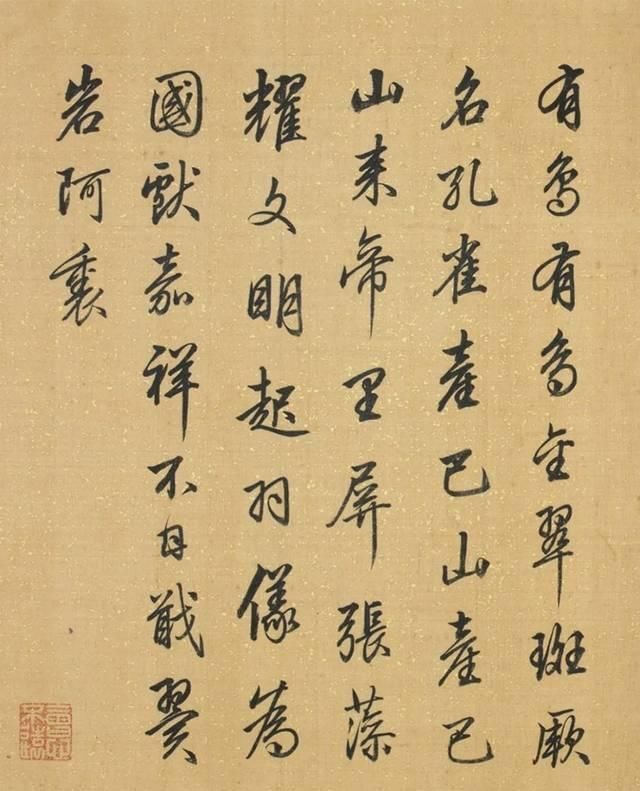 有鳥有鳥金翠斑厥
名孔雀產巴山產巴
山来帝里屏張藻
耀文明起羽儀為
國獻嘉祥不自戢翼
岩阿裏